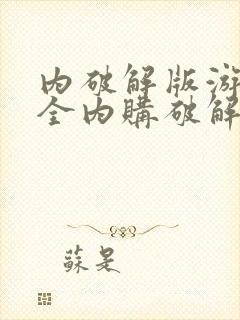 内破解版游
全内購破解
蘇是